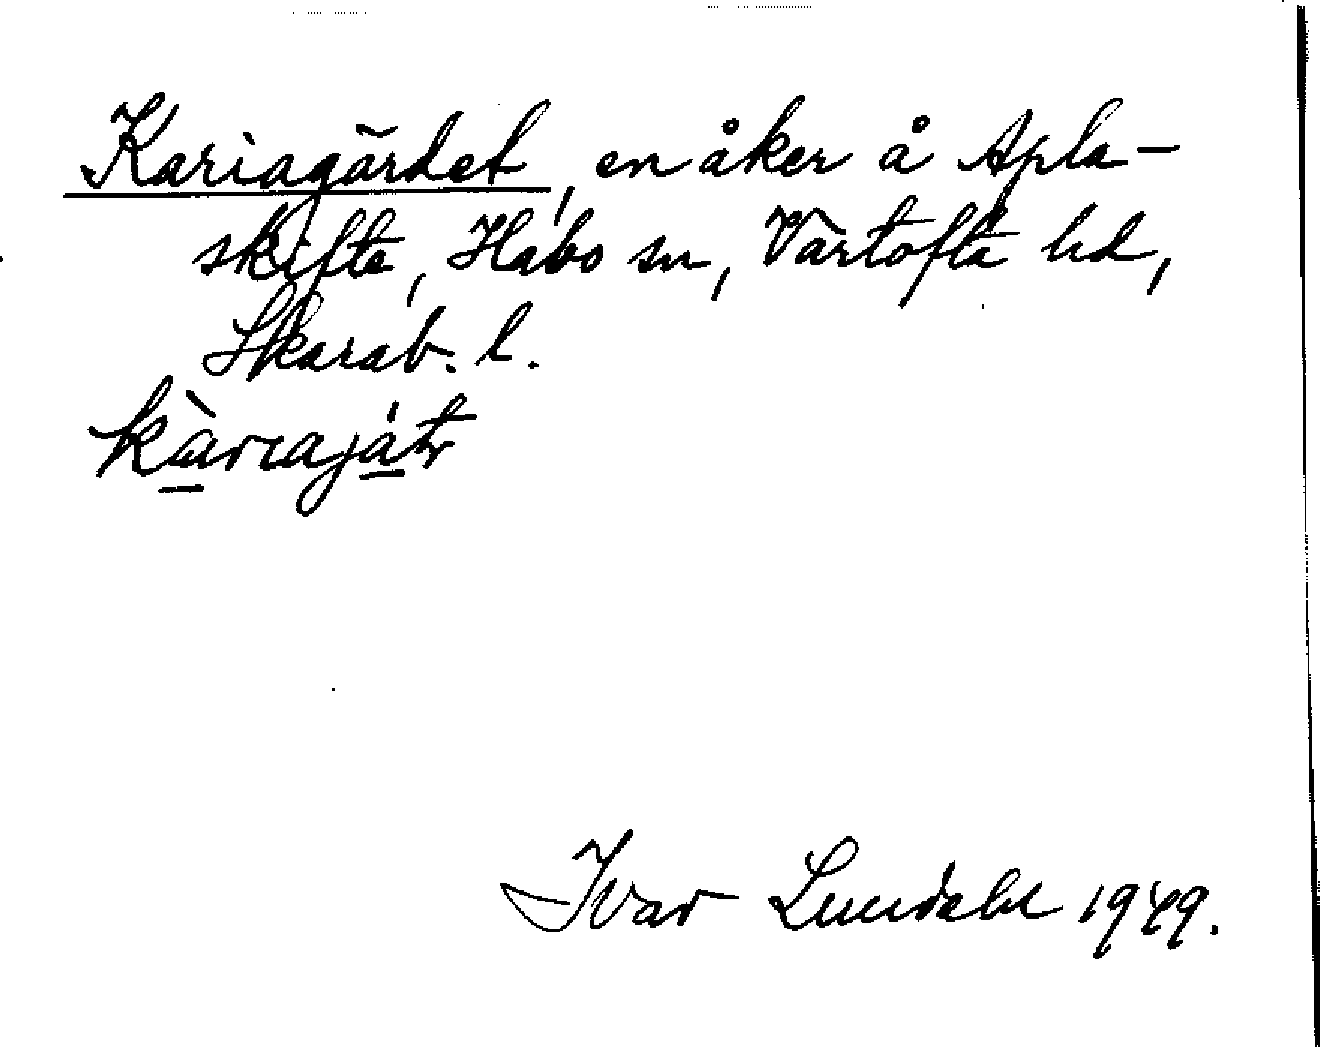 Kariagärdet, en åker å Apla-
skifte, Habo sn, Vartofta hd,
Skarab. l.
kàriajátr
Ivar Lundahl 1949.